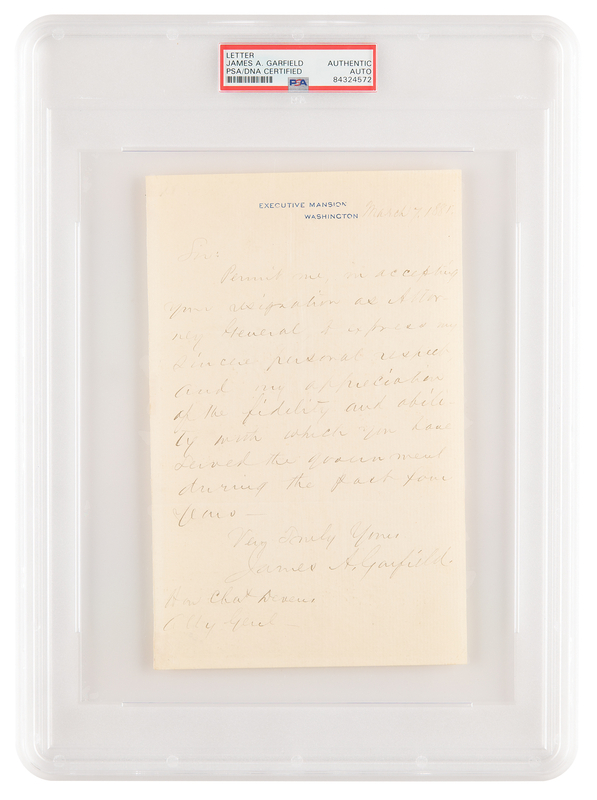 LETTER
JAMES A. GARFIELD
PSA/DNA CERTIFIED
AUTHENTIC
AUTO
84324572
PSA
EXECUTIVE MANSION
WASHINGTON
March 7, 1881.
Sir:
Permit me, in accepting
your resignation as Attor-
ney General to express my
sincere personal respect
and my appreciation
of the fidelity and abili-
ty with which you have
served the government
during the past four
years—
Very Truly Yours
James A. Garfield.
Hon Chas Devens
Atty Genl—